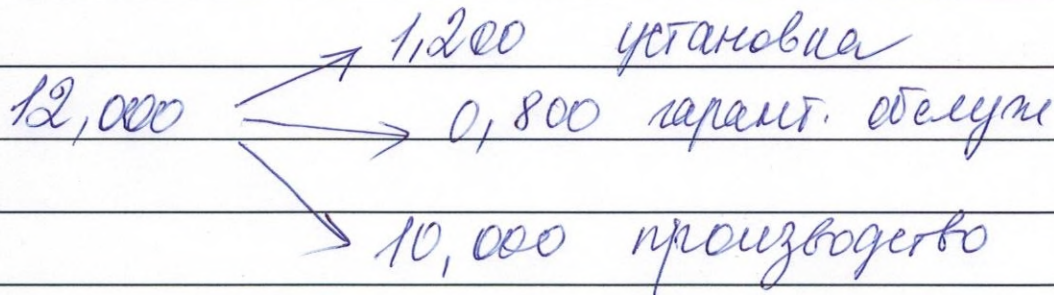 1,200 установка
12,000
0,800 гарант. обслуж
10,000 производство